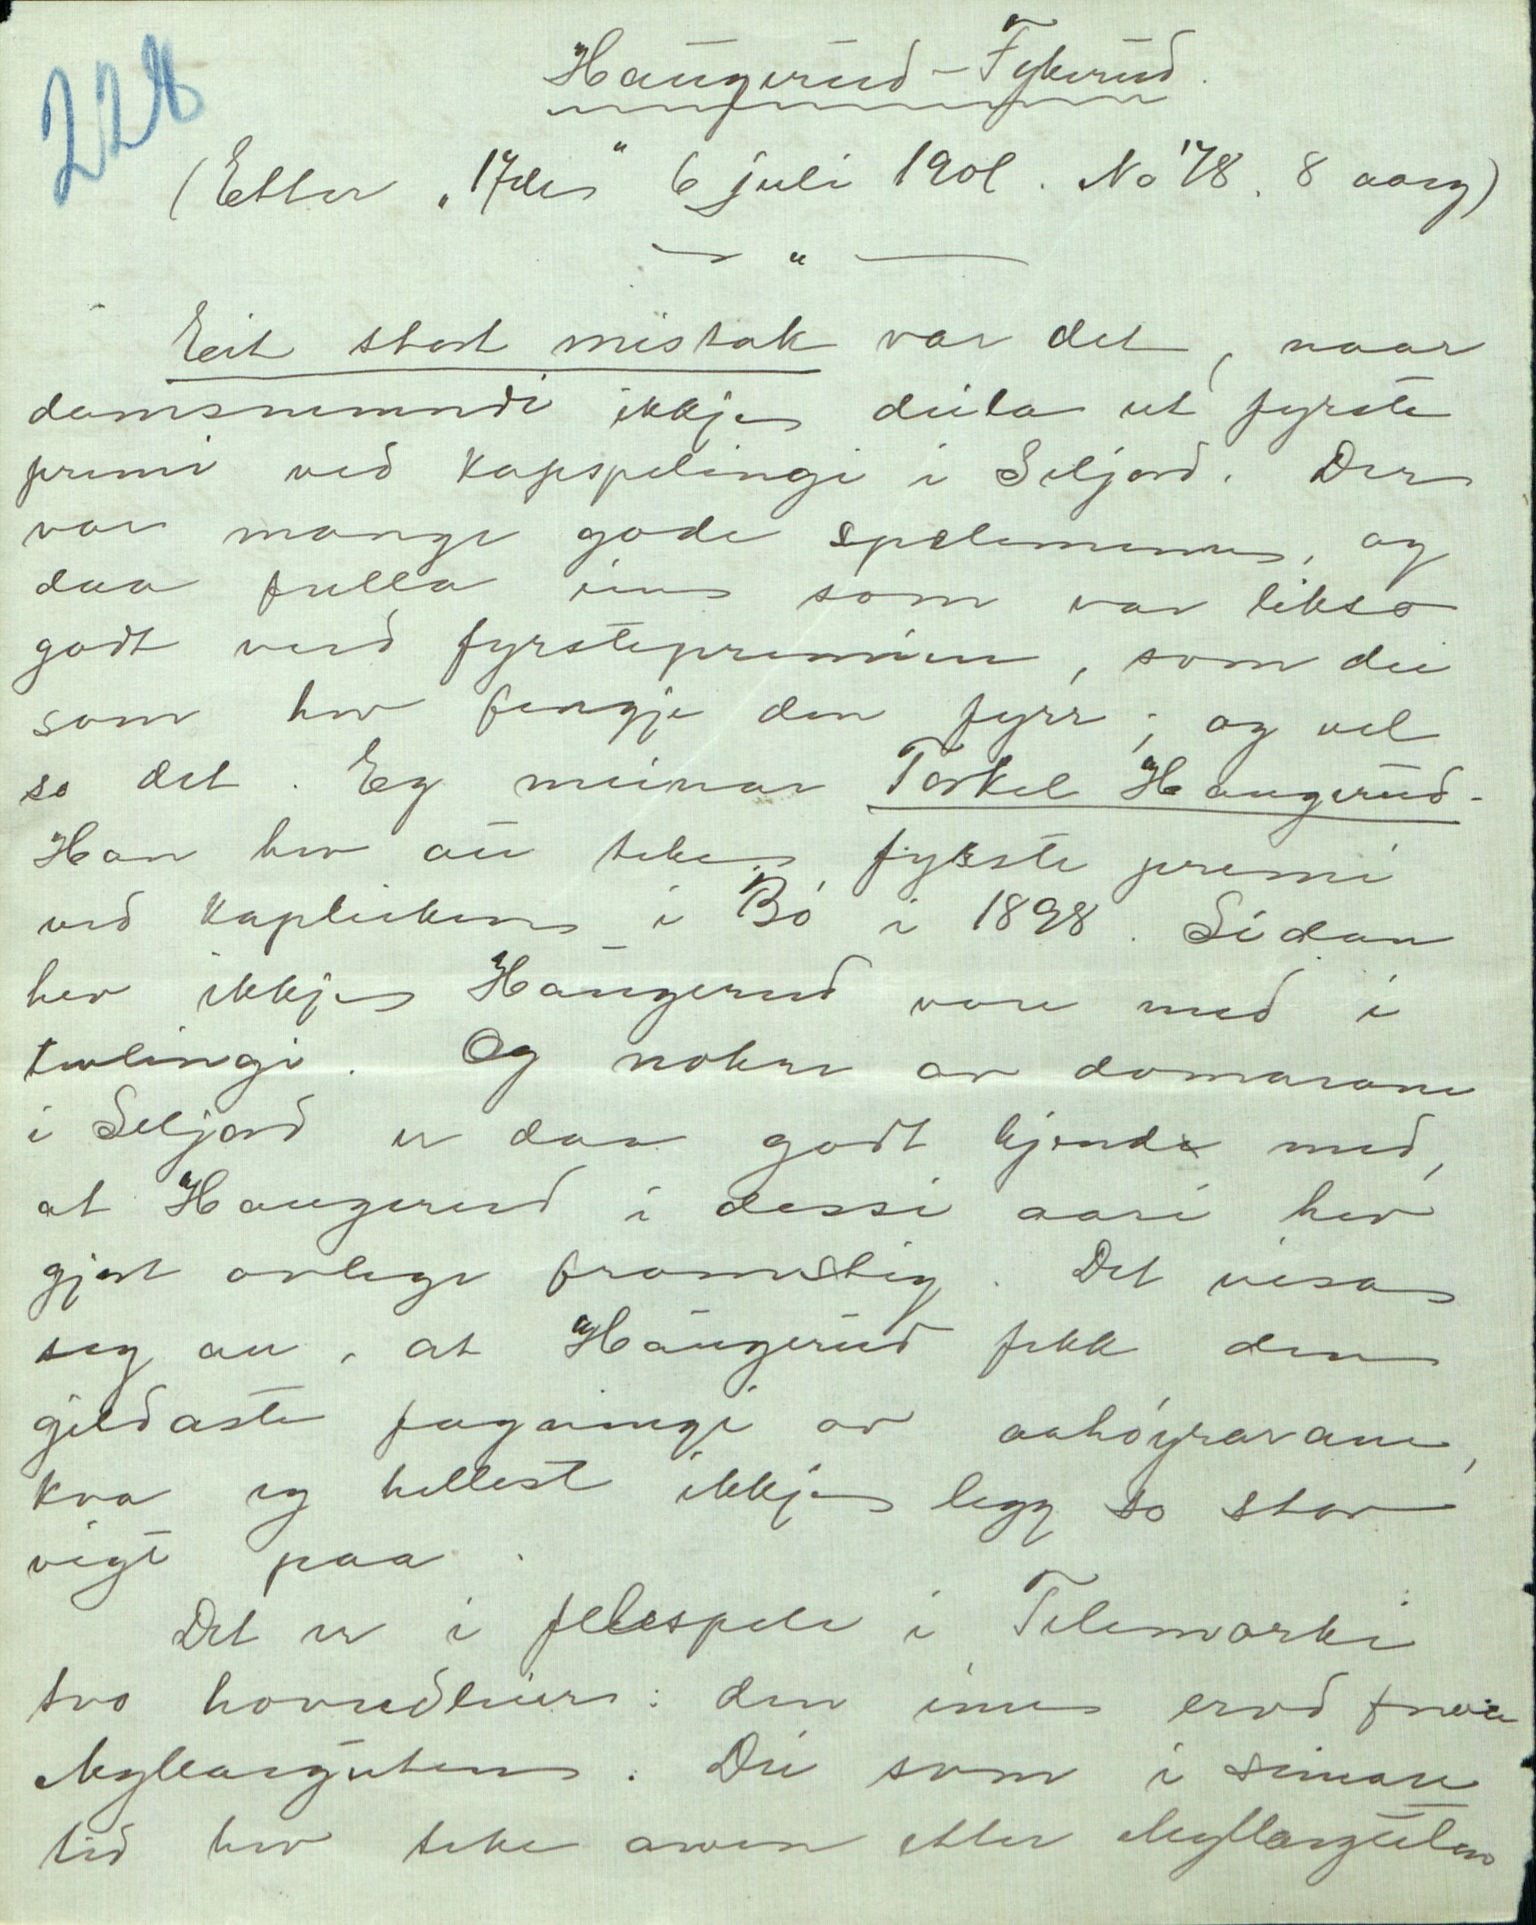 228
Haugerud - Fykerud.
(Etter „17de" 6 juli 1901. No 78. 8 aarg)
— " —
Eit stort mistak var det, naar
domsnemndi ikkje deila ut fyrste
premi ved kapspelingi i Seljord. Der
var mange gode spelemenner, og
daa fulla ein som var likso
godt verd fyrstepremien, som dei
som hev fengje den fyrr; og vel
so det. Eg meinar Torkel Haugerud.
Han hev au teke fyrste premi
ved kapleiken i Bø i 1898. Sidan
hev ikkje Haugerud vore med i
tevlingi. Og nokre av domarane
i Seljord er daa godt kjende med,
at Haugerud i dessi aari hev
gjort ovlege framstig. Det visas
seg au, at Haugerud fekk den
gjildaste fagningi av aahøyrarane,
kva eg hellest ikkje legg so stor
vigt paa.
Det er i felespele i Telemarki
tvo hovudleier: den eine ervd fraa
Myllarguten. Dei som i seinare
tid hev teke arven etter Myllarguten